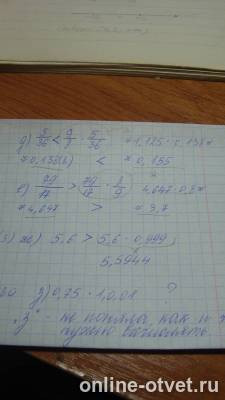 д) 5/36 < 9/8 · 5/36 ≈ 1,125 · 0,138≈
≈ 0,138(8) < ≈ 0,155
е) 79/17 > 79/17 · 8/9 4,647 · 0,8≈
≈ 4,647 > ≈ 3,7
ж) 5,6 > 5,6 · 0,999;
5,5944
з) 0,75 · 1,001 ?
"з" - не поняла, как и
нужно вычислять
online-otvet.ru